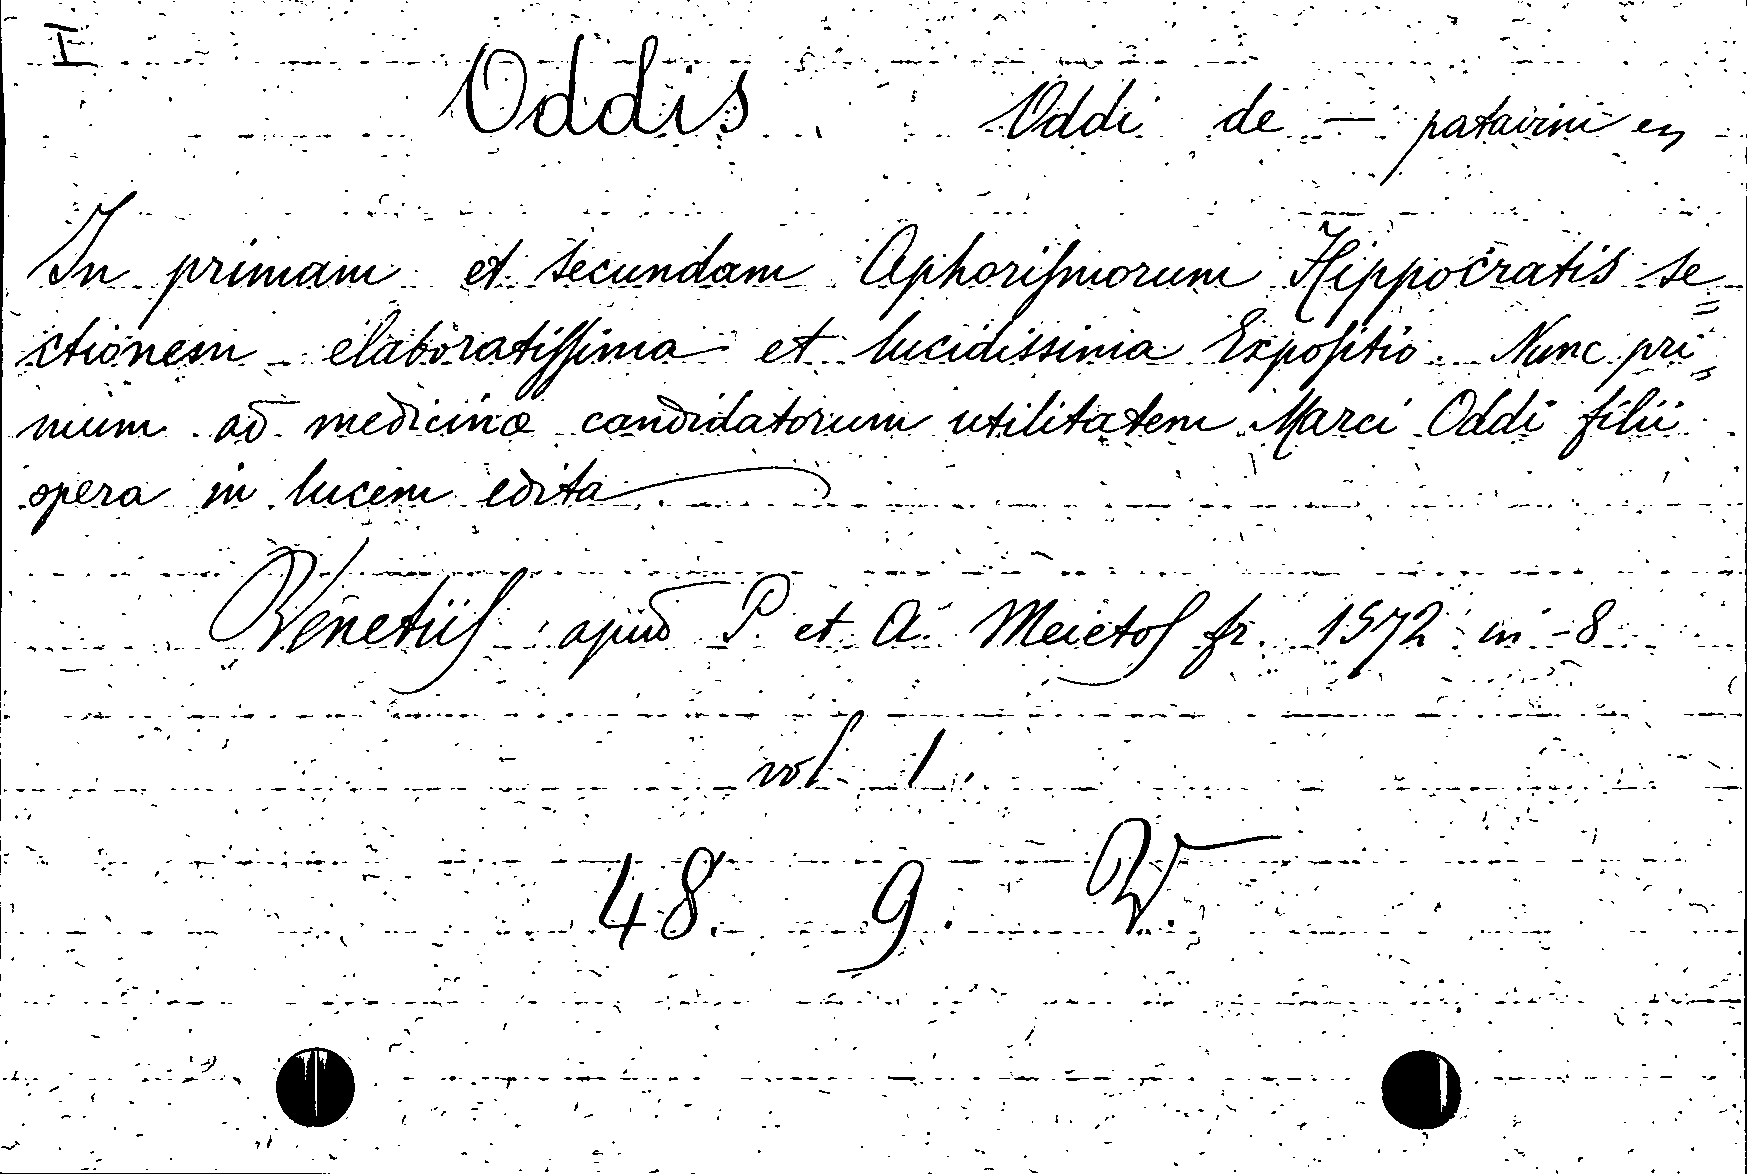 I
Oddis Oddi de — patavini en
In primam et secundam Aphoriſmorum Hippocratis se=
ctionem elaboratiſſima et lucidissima Expoſitio. Nunc pri=
mum ad medicinæ candidatorum utilitatem Marci Oddi filii
opera in lucem edita
Venetiiſ apud P. et A. Meietoſ fr. 1572 in-8
vol 1.
48. 9. W.